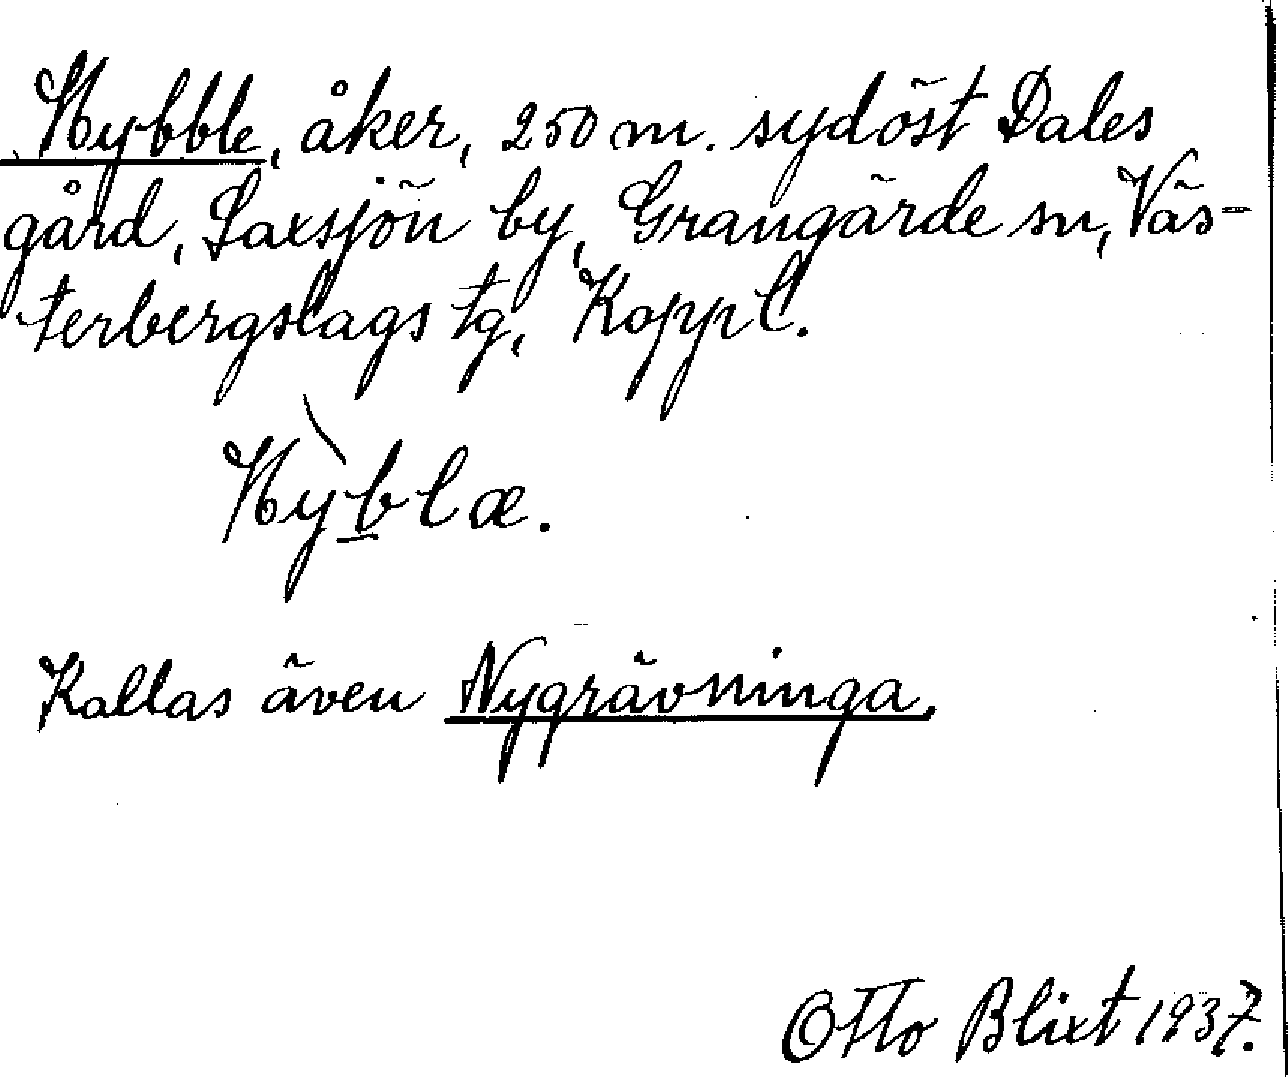 Hybble, åker, 250 m. sydöst Dales
gård, Saxsjön by, Grangärde sn, Väs-
terbergslags tg, Koppl.
Hy̍b̲læ.
Kallas även Nygrävninga.
Otto Blixt 1937.